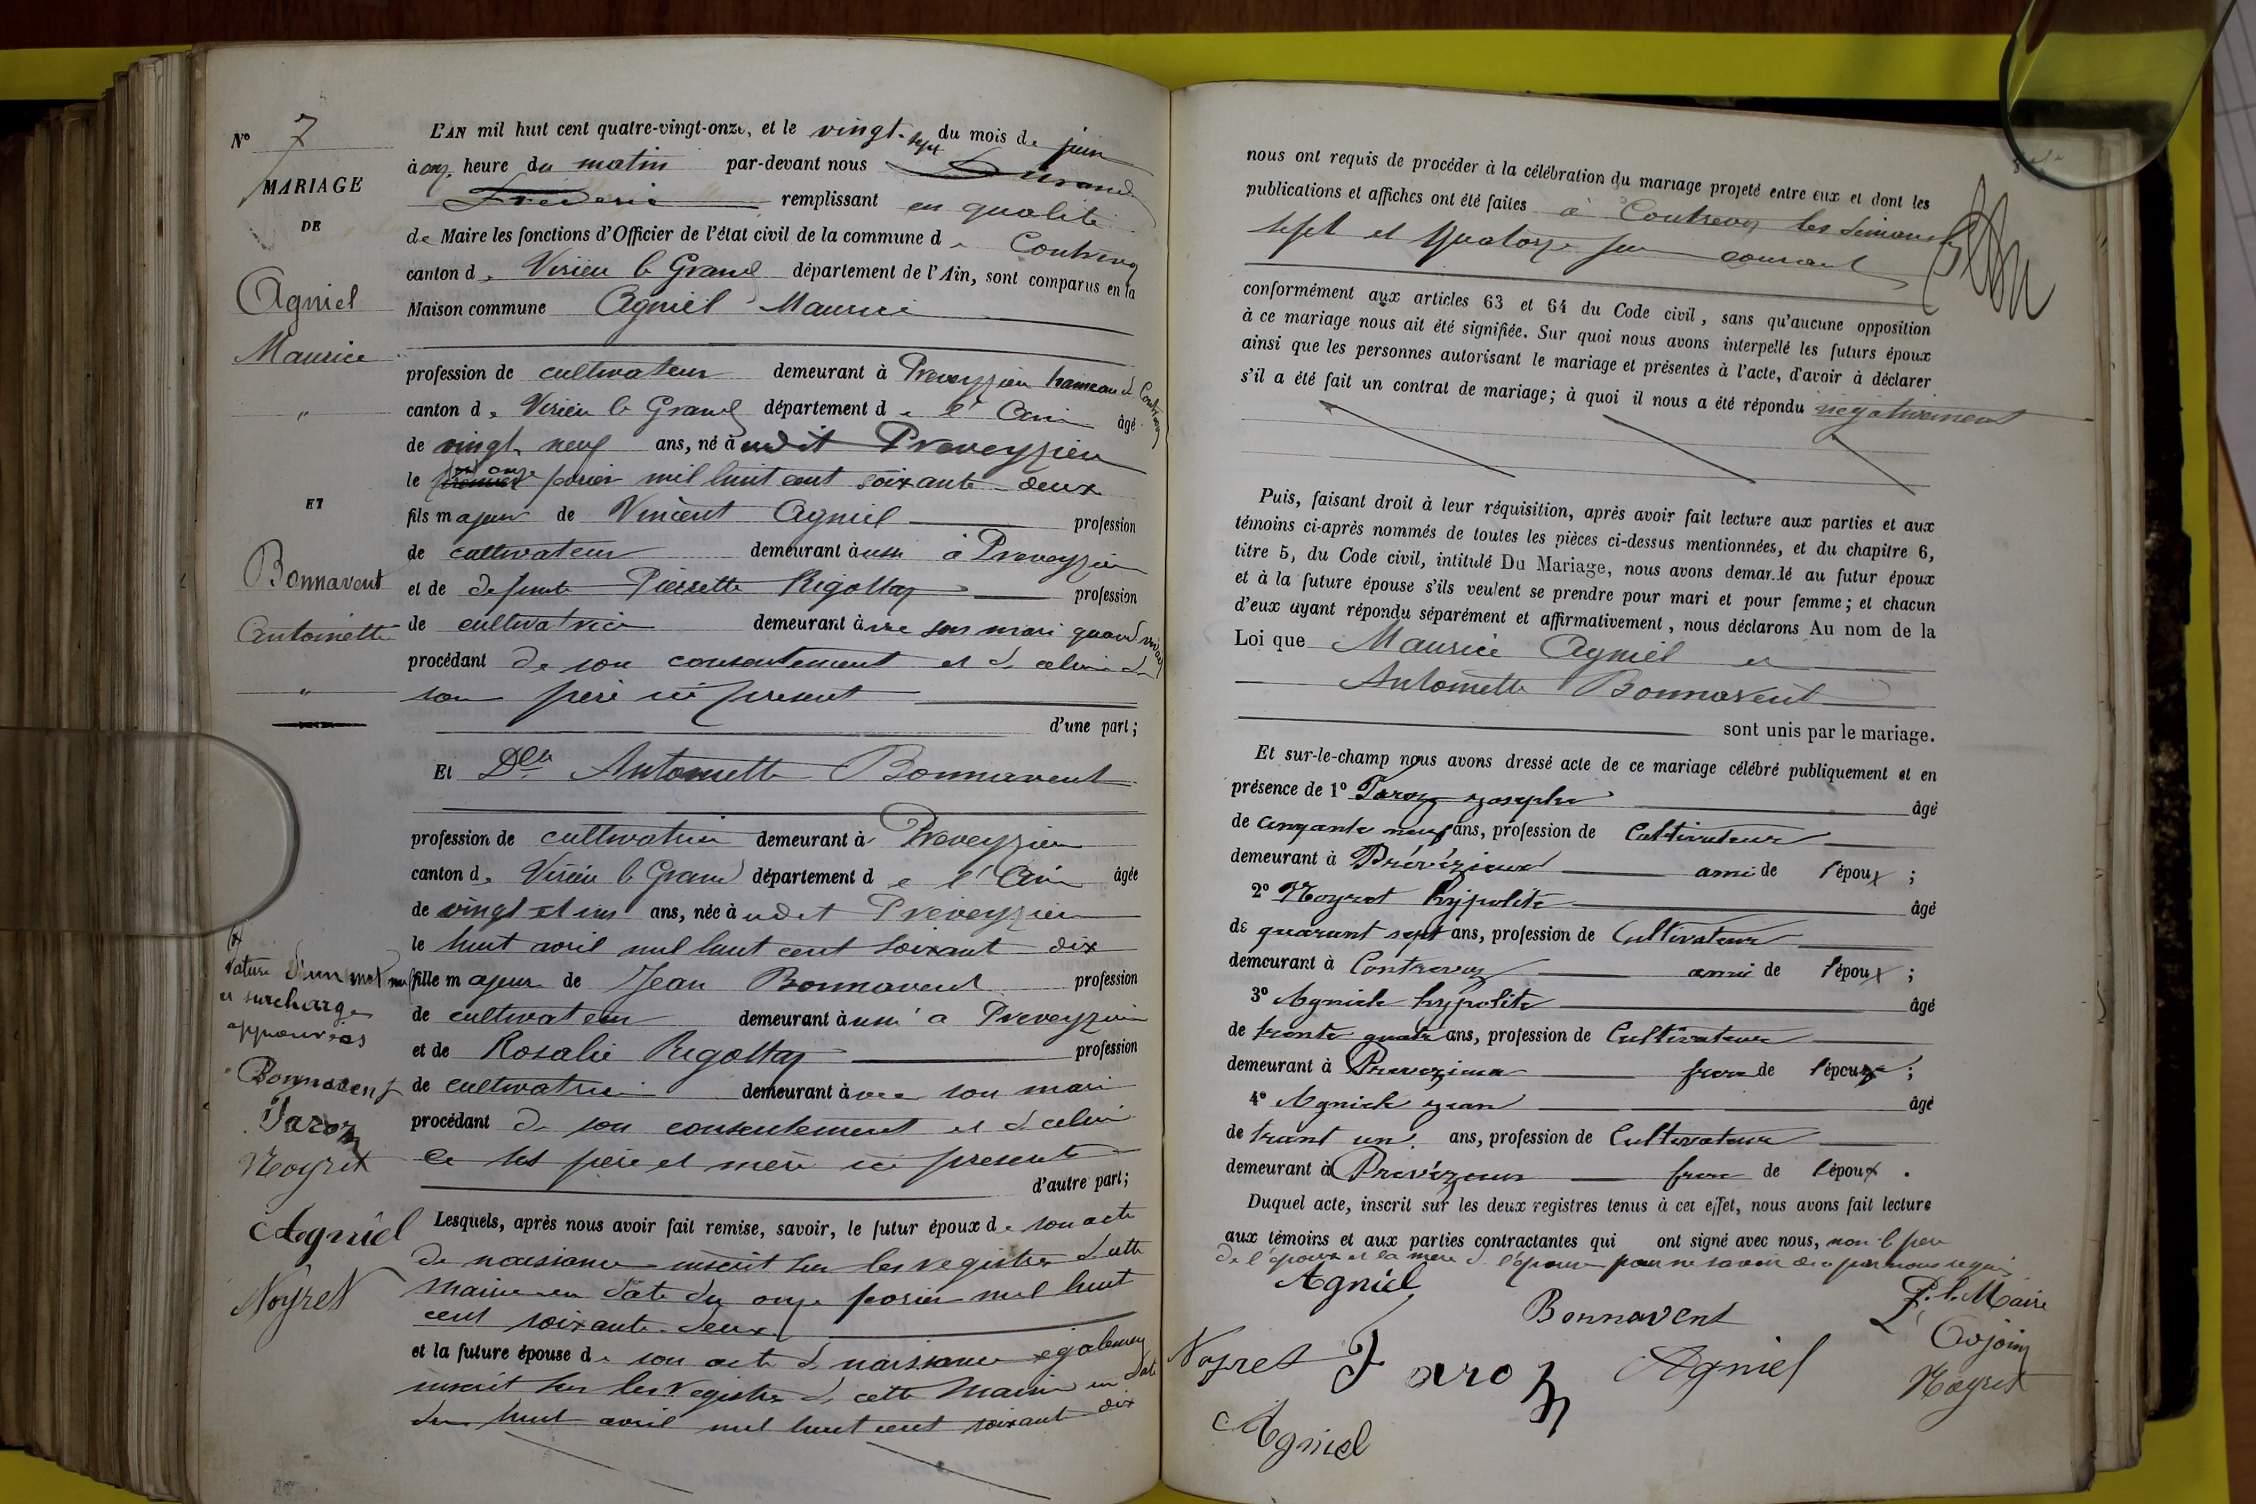 N° 7
MARIAGE
DE
Agniel
Maurice
"
ET
Bonnavent
Antoinette
"
rature d'un mot nul
et surcharge
approuvées
Bonnavent
Taroz
Noyret
Agniel
Noyret
L'AN mil huit cent quatre-vingt-onze, et le vingt-sept du mois de juin
à onze heure du matin par-devant nous Durand
Frederic remplissant en qualité
de Maire les fonctions d'Officier de l'état civil de la commune de Contrevoz
canton de Virieu le Grand département de l'Ain, sont comparus en la
Maison commune Agniel Maurice
profession de cultivateur demeurant à Preveyzieu hameau de Contrevoz
canton de Virieu le Grand département de l'Ain âgé
de vingt neuf ans, né à udit Preveyzieu
le onze février mil huit cent soixante deux
fils majeur de Vincent Agniel profession
de cultivateur demeurant aussi à Preveyzieu
et de defunte Pierrette Rigottaz profession
de cultivatrice demeurant avec son mari quand vivait
procédant de son consentement et de celui de
son père ici présent
d'une part;
Et Dlle Antoinette Bonnavent
profession de cultivatrice demeurant à Preveyzieu
canton de Virieu le Grand département de l'Ain âgée
de vingt et un ans, née à udit Preveyzieu
le huit avril mil huit cent soixante dix
fille majeure de Jean Bonnavent profession
de cultivateur demeurant aussi à Preveyzieu
et de Rosalie Rigottaz profession
de cultivatrice demeurant avec son mari
procédant de son consentement et de celui
de ses père et mère ici présents
d'autre part;
Lesquels, après nous avoir fait remise, savoir, le futur époux de son acte
de naissance inscrit sur les registres de cette
Mairie en date du onze février mil huit
cent soixante-deux
et la future épouse de son acte de naissance également
inscrit sur les registres de cette Mairie en date
du huit avril mil huit cent soixante dix
nous ont requis de procéder à la célébration du mariage projeté entre eux et dont les
publications et affiches ont été faites à Contrevoz les dimanches
sept et quatorze juin courant
conformément aux articles 63 et 64 du Code civil, sans qu'aucune opposition
à ce mariage nous ait été signifiée. Sur quoi nous avons interpellé les futurs époux
ainsi que les personnes autorisant le mariage et présentes à l'acte, d'avoir à déclarer
s'il a été fait un contrat de mariage; à quoi il nous a été répondu négativement
Puis, faisant droit à leur réquisition, après avoir fait lecture aux parties et aux
témoins ci-après nommés de toutes les pièces ci-dessus mentionnées, et du chapitre 6,
titre 5, du Code civil, intitulé Du Mariage, nous avons demandé au futur époux
et à la future épouse s'ils veulent se prendre pour mari et pour femme; et chacun
d'eux ayant répondu séparément et affirmativement, nous déclarons Au nom de la
Loi que Maurice Agniel et
Antoinette Bonnavent
sont unis par le mariage.
Et sur-le-champ nous avons dressé acte de ce mariage célébré publiquement et en
présence de 1° Taroz Joseph âgé
de cinquante neuf ans, profession de Cultivateur
demeurant à Prévézieux ami de l'époux ;
2° Noyret hypolite âgé
de quarant sept ans, profession de Cultivateur
demeurant à Contrevoz ami de l'époux ;
3° Agniele hypolite âgé
de trente quatre ans, profession de Cultivateur
demeurant à Prevezieux frere de l'époux ;
4° Agniele Jean âgé
de trant un ans, profession de Cultivateur
demeurant à Prévézieux frere de l'époux .
Duquel acte, inscrit sur les deux registres tenus à cet effet, nous avons fait lecture
aux témoins et aux parties contractantes qui ont signé avec nous, non le père
de l'époux et la mère de l'épouse pour ne savoir de ce par nous requis
Agniel
Bonnavent
P. le Maire
Adjoint
Noyret
Noyret Taroz Agniel
Agniel